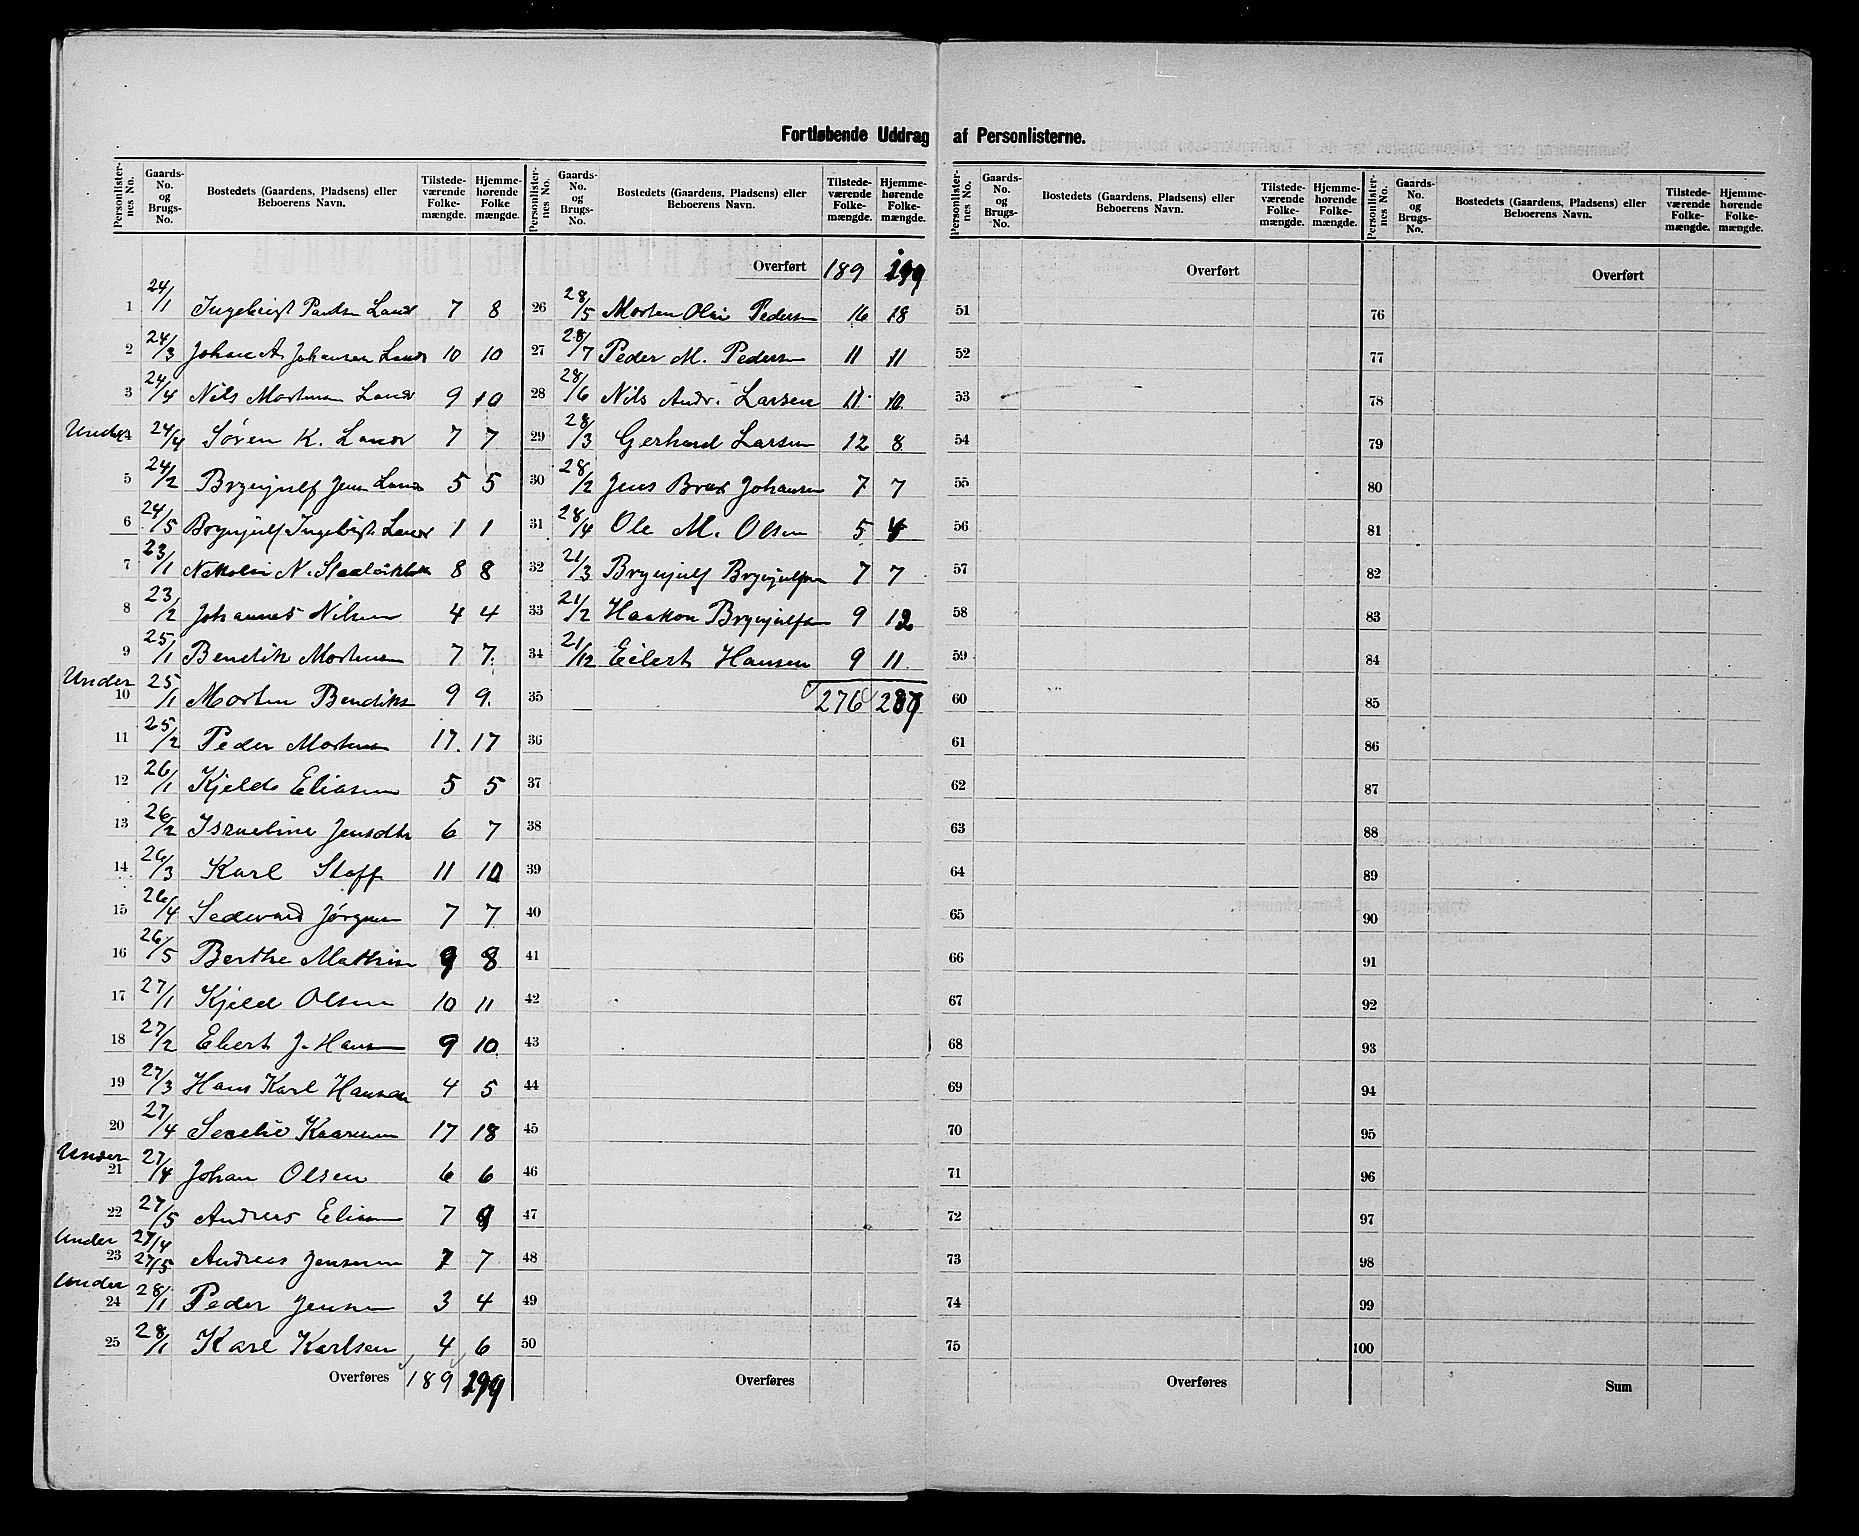 Fortløbende Uddrag af Personlisterne.
Personlister-nes No. | Gaards-No. og Brugs-No. | Bostedets (Gaardens, Pladsens) eller Beboerens Navn. | Tilstede-værende Folke-mængde. | Hjemme-hørende Folke mængde.
1 24/1 Ingebrigt Paulsen Land 7 8
2 24/3 Johan A Johansen Land 10 10
3 24/4 Nils Mortensen Land 9 10
Under 4 24/4 Søren K. Land 7 7
5 24/2 Brynjulf Jens Land 5 5
6 24/5 Brynjulf Ingebrigt Land 1 1
7 23/1 N. 8 8
8 23/2 Johannes Nilsen 4 4
9 25/1 Bendik Mortensen 7 7.
Under 10 25/1 Morten Bendiks 9 9.
11 25/2 Peder Mortensen 17. 17
12 26/1 Kjeld Eliasen 5 5
13 26/2 Israeline Jensdtr 6 7
14 26/3 Karl Staff 11 10
15 26/4 Sedevard Jørgensen 7 7
16 26/5 Berthe Mathisen 9 8
17 27/1 Kjeld Olsen 10 11
18 27/2 Ebert J. Hansen 9 10
19 27/3 Hans Karl Hansen 4 5
20 27/4 Secelie Kaaresen 17 18
Under 21 27/4 Johan Olsen 6 6
22 27/5 Andreas Eliasen 7 9
Under 23 27/4 27/5 Andreas Jensen 7 7
Under 24 28/1 Peder Jensen 3 4
25 28/1 Karl Karlsen 4 6
Overføres 189 199
Personlister-nes No. | Gaards-No. og Brugs-No. | Bostedets (Gaardens, Pladsens) eller Beboerens Navn. | Tilstede-værende Folke-mængde. | Hjemme-hørende Folke-mængde.
Overført 189 199
26 28/5 Morten Olai Pedersen 16 18
27 28/7 Peder M. Pedersen 11 11
28 28/6 Nils Andr. Larsen 11. 10.
29 28/3 Gerhard Larsen 12 8
30 28/2 Jens Brox Johansen 7 7
31 28/4 Ole M. Olsen 5 4
32 21/3 Brynjulf Brynjulfsen 7 7
33 21/2 Haakon Brynjulfsen 9 12
34 21/12 Eilert Hansen 9 11.
35 276 287
36
37
38
39
40
41
42
43
44
45
46
47
48
49
50
Overføres
Personlister-nes No. | Gaards-No. og Brugs-No. | Bostedets (Gaardens, Pladsens) eller Beboerens Navn. | Tilstede-værende Folke-mængde. | Hjemme-hørende Folke-mængde.
Overført
51
52
53
54
55
56
57
58
59
60
61
62
63
64
65
66
67
68
69
70
71
72
73
74
75
Overføres
Personlister-nes No. | Gaards-No. og Brugs-No. | Bostedets (Gaardens, Pladsens) eller Beboerens Navn. | Tilstede-værende Folke-mængde. | Hjemme-hørende Folke-mængde.
Overført
76
77
78
79
80
81
82
83
84
85
86
87
88
89
90
91
92
93
94
95
96
97
98
99
100
Sum